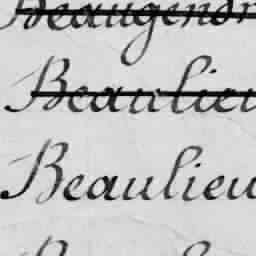 Beaugendr
Beaulieu
Beaulieu